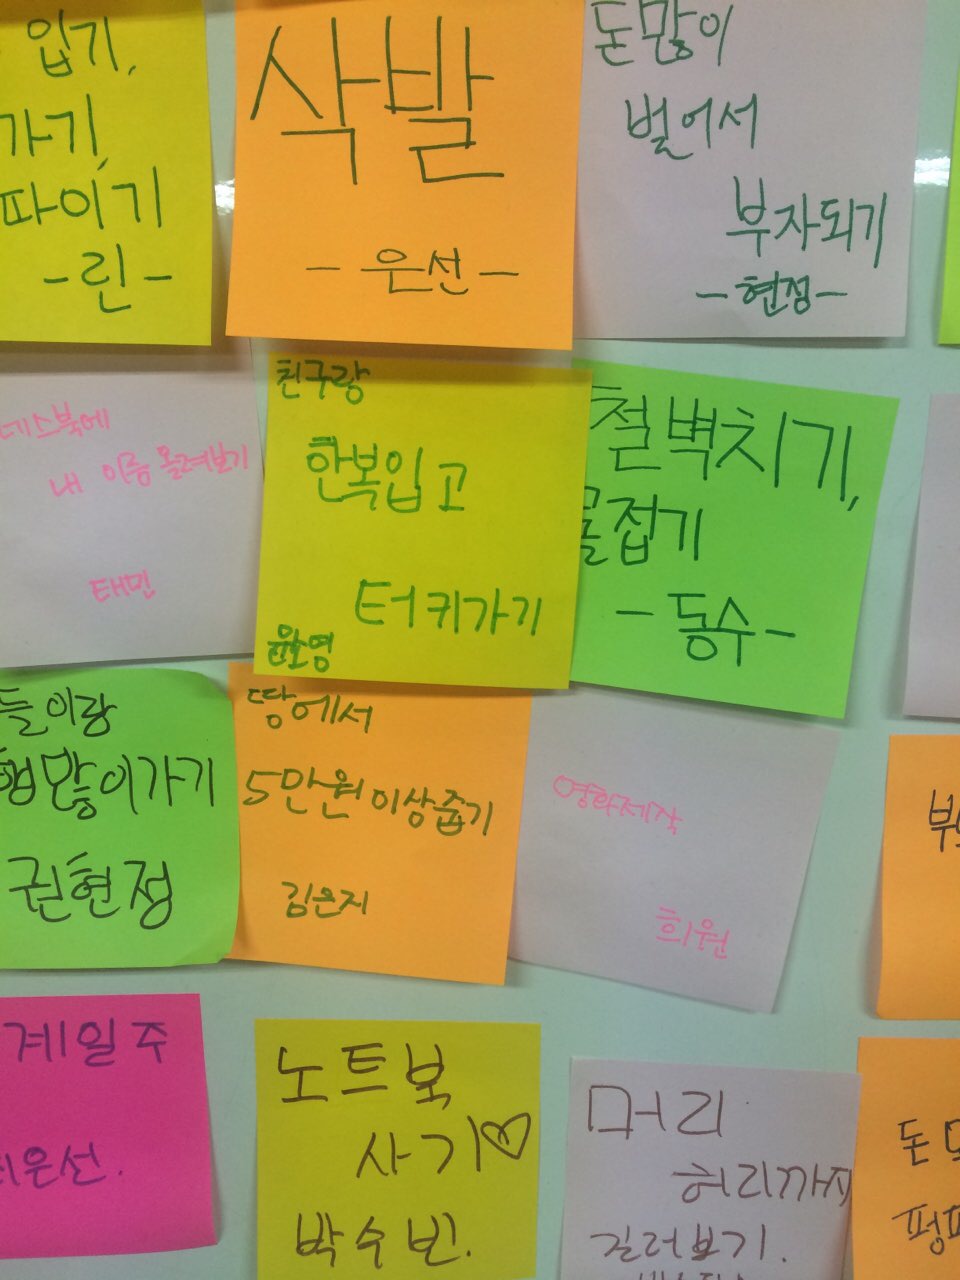 입기,
가기,
파이기
-린-
삭발
-은선-
돈많이
벌어서
부자되기
-현정-
네스북에
내 이름 올려보기
태민
친구랑
한복입고
터키가기
윤영
철벽치기,
몰접기
-동수-
들이랑
행많이가기
권현정
땅에서
5만원이상줍기
김은지
영화제작
희원
계일주
은선.
노트북
사기♡
박수빈.
머리
허리까지
길러보기.
돈